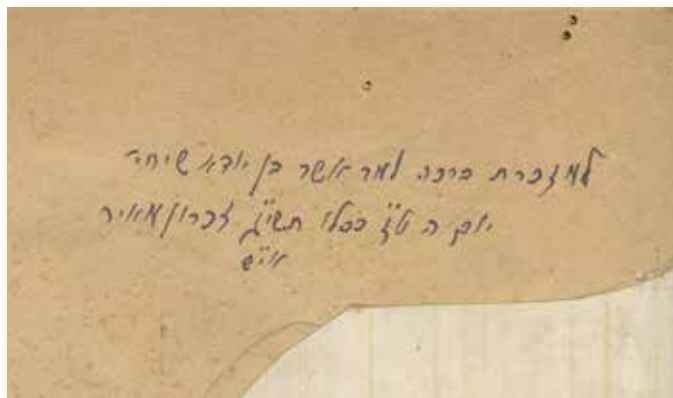 למזכרת ברכה למר אשר בן יודא שיחי'
יום ה ט"ז כסלו תשי"ג זכרון מאיר
אי"ש